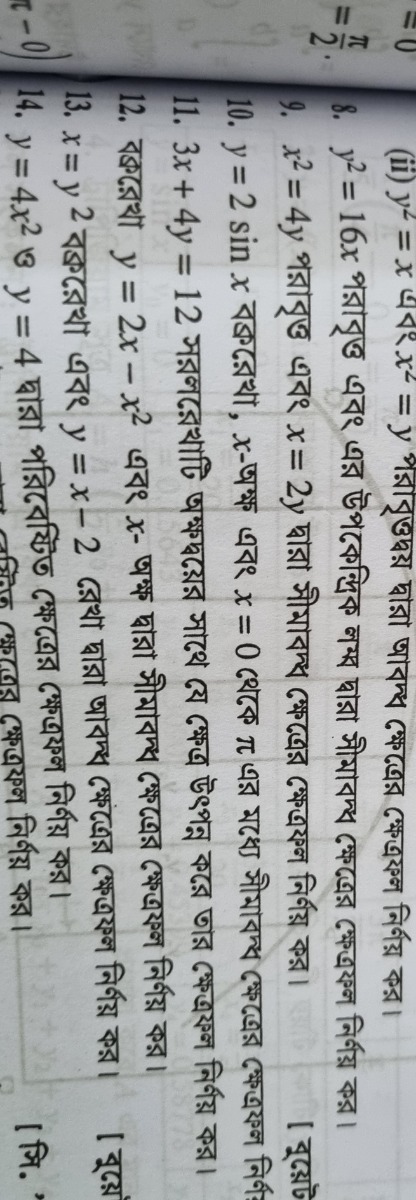 = 0
= π/2 .
π – 0)
(ii) y² = x এবং x² = y পরাবৃত্তদ্বয় দ্বারা আবদ্ধ ক্ষেত্রের ক্ষেত্রফল নির্ণয় কর।
8. y² = 16x পরাবৃত্ত এবং এর উপকেন্দ্রিক লম্ব দ্বারা সীমাবদ্ধ ক্ষেত্রের ক্ষেত্রফল নির্ণয় কর।
9. x² = 4y পরাবৃত্ত এবং x = 2y দ্বারা সীমাবদ্ধ ক্ষেত্রের ক্ষেত্রফল নির্ণয় কর। [ বুয়েট
10. y = 2 sin x বক্ররেখা, x-অক্ষ এবং x = 0 থেকে π এর মধ্যে সীমাবদ্ধ ক্ষেত্রের ক্ষেত্রফল নির্ণ
11. 3x + 4y = 12 সরলরেখাটি অক্ষদ্বয়ের সাথে যে ক্ষেত্র উৎপন্ন করে তার ক্ষেত্রফল নির্ণয় কর।
12. বক্ররেখা y = 2x – x² এবং x- অক্ষ দ্বারা সীমাবদ্ধ ক্ষেত্রের ক্ষেত্রফল নির্ণয় কর।
13. x = y² বক্ররেখা এবং y = x – 2 রেখা দ্বারা আবদ্ধ ক্ষেত্রের ক্ষেত্রফল নির্ণয় কর। [ বুয়ে
14. y = 4x² ও y = 4 দ্বারা পরিবেষ্টিত ক্ষেত্রের ক্ষেত্রফল নির্ণয় কর।
ক্ষেত্রের ক্ষেত্রফল নির্ণয় কর। [ সি.